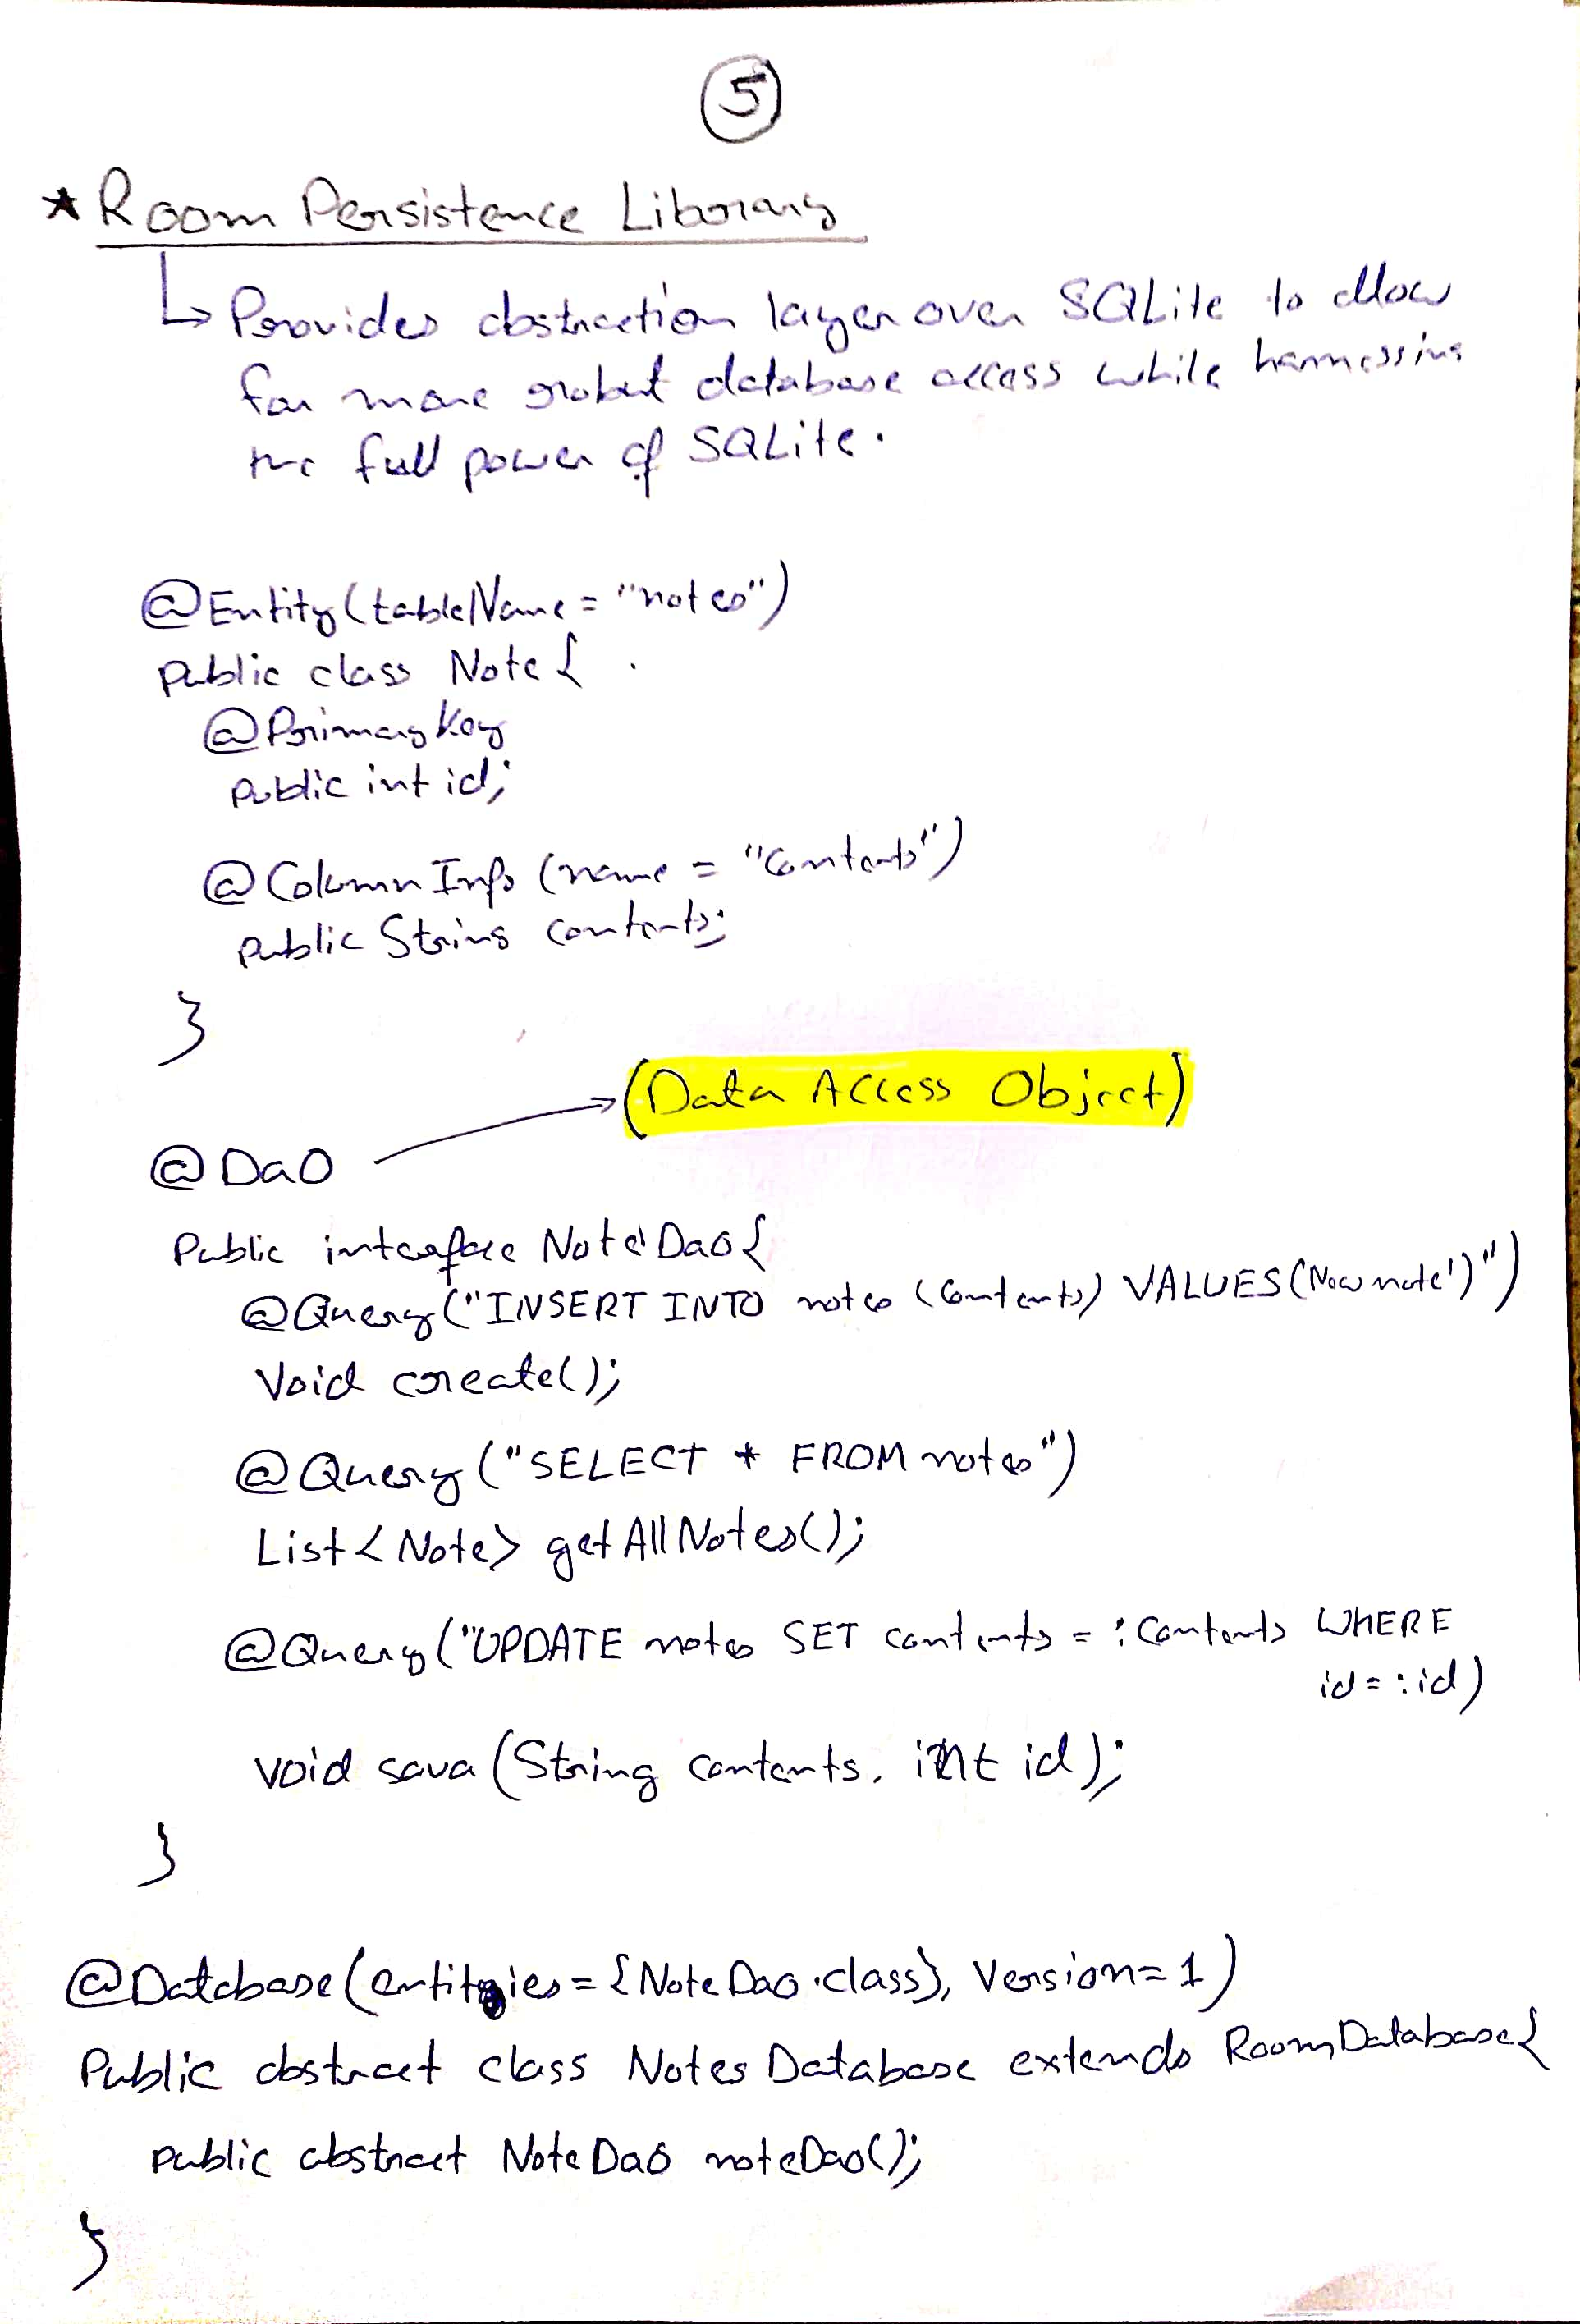 5
* Room Persistence Library
↳ Provides abstraction layer over SQLite to allow
for more robust database access while harnessing
the full power of SQLite.
@Entity(tableName = "notes")
public class Note {
@PrimaryKey
public int id;
@ColumnInfo (name = "contents")
public String contents;
}
(Data Access Object)
@Dao
Public interface NoteDao{
@Query("INSERT INTO notes (contents) VALUES(New note')")
Void create();
@Query("SELECT * FROM notes")
List<Note> getAllNotes();
@Query("UPDATE notes SET contents = :contents WHERE
id = :id)
void sava (String contents, int id);
}
@Database(entities = {NoteDao.class}, Version=1)
Public abstract class NotesDatabase extends RoomDatabase{
public abstract NoteDao noteDao();
}